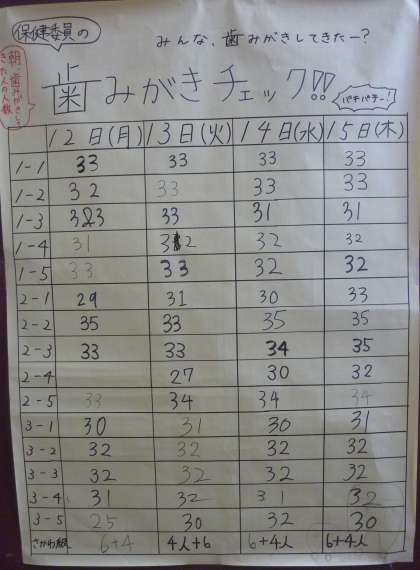 保健委員の
みんな、歯みがきしてきたー?
歯みがきチェック!!
パチパチー!
12日(月) 13日(火) 14日(水) 15日(木)
1-1 33 33 33 33
1-2 32 33 33 33
1-3 33 33 31 31
1-4 31 32 32 32
1-5 33 33 32 32
2-1 29 31 30 33
2-2 35 33 35 35
2-3 33 33 34 35
2-4 27 30 32
2-5 33 34 34 34
3-1 30 31 30 31
3-2 32 32 32 32
3-3 32 32 32 32
3-4 31 32 31 32
3-5 25 30 32 30
さがわ組 6+4 4人+6 6+4人 6+4人